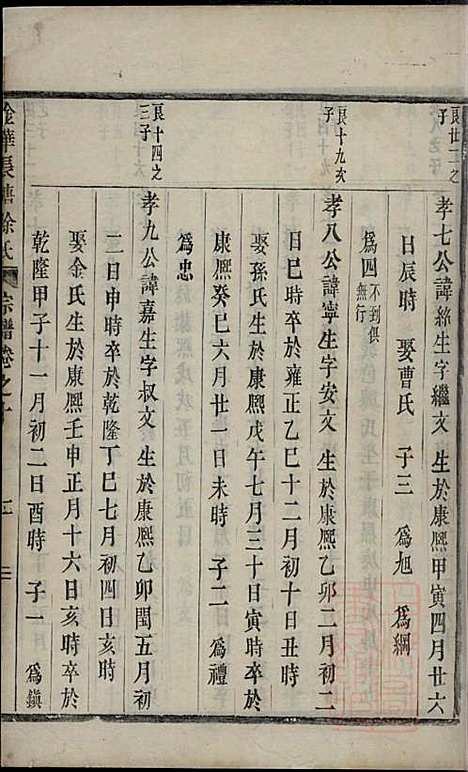 良廿二之子
孝七公諱絲生字繼文 生於康熙甲寅四月廿六
日辰時 娶曹氏 子三 爲旭 爲綱
爲四 不到俱無行
良十九次子
孝八公諱寧生字安文 生於康熙乙卯二月初二
日巳時卒於雍正乙巳十二月初十日丑時
娶孫氏生於康熙戊午七月三十日寅時卒於
康熙癸巳六月廿一日未時 子二 爲禮
爲忠
良十四之三子
孝九公諱嘉生字叔文 生於康熙乙卯閏五月初
二日申時卒於乾隆丁巳七月初四日亥時
娶金氏生於康熙壬申正月十六日亥時卒於
乾隆甲子十一月初二日酉時 子一 爲鎭
金華長塘徐氏宗譜卷之